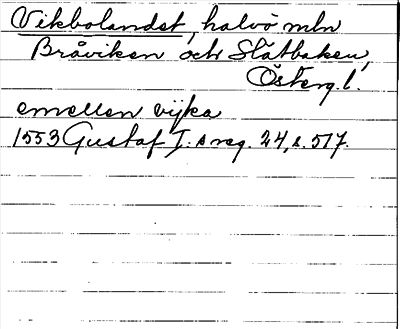 Vikbolandet, halvö mln
Bråviken och Slätbaken,
Österg. l.
emellen vijka
1553 Gustaf I:s reg. 24, s. 517.